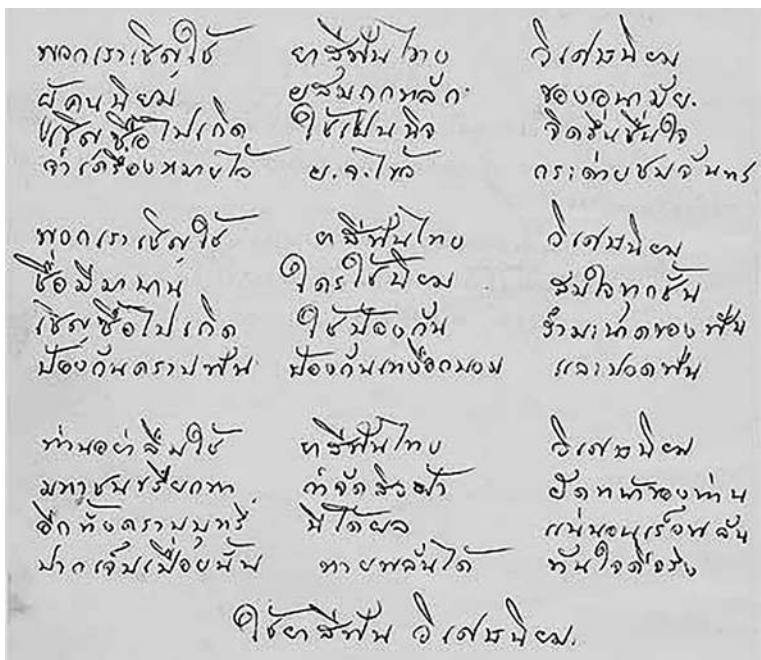 พวกเราเชิญใช้ ยาสีฟันไทย วิเศษนิยม
ผู้คนนิยม ผสมกกหลัก ของอนามัย.
เชิญซื้อไปเถิด ใช้เป็นนิจ จิตรื่นชื่นใจ
จำเครื่องหมายไว้ ย.จ.ไหว้ กระต่ายชมจันทร์
พวกเราเชิญใช้ ยาสีฟันไทย วิเศษนิยม
ชื่อมีมานาน ใครใช้นิยม สมใจทุกชั้น
เชิญซื้อไปเถิด ใช้ป้องกัน รำมะนาดของฟัน
ป้องกันคราบฟัน ป้องกันเหงือกบวม และปวดฟัน
ท่านอย่าลืมใช้ ยาสีฟันไทย วิเศษนิยม
มหาชนเรียกหา กำจัดสิวฝ้า ผัดหน้าของท่าน
อีกทั้งคราบบุหรี่ นี่ได้ผล แน่นอนเร็วพลัน
ปากเจ็บเปื่อยนั้น หายพลันได้ ทันใจดีจริง
ใช้ยาสีฟัน วิเศษนิยม.